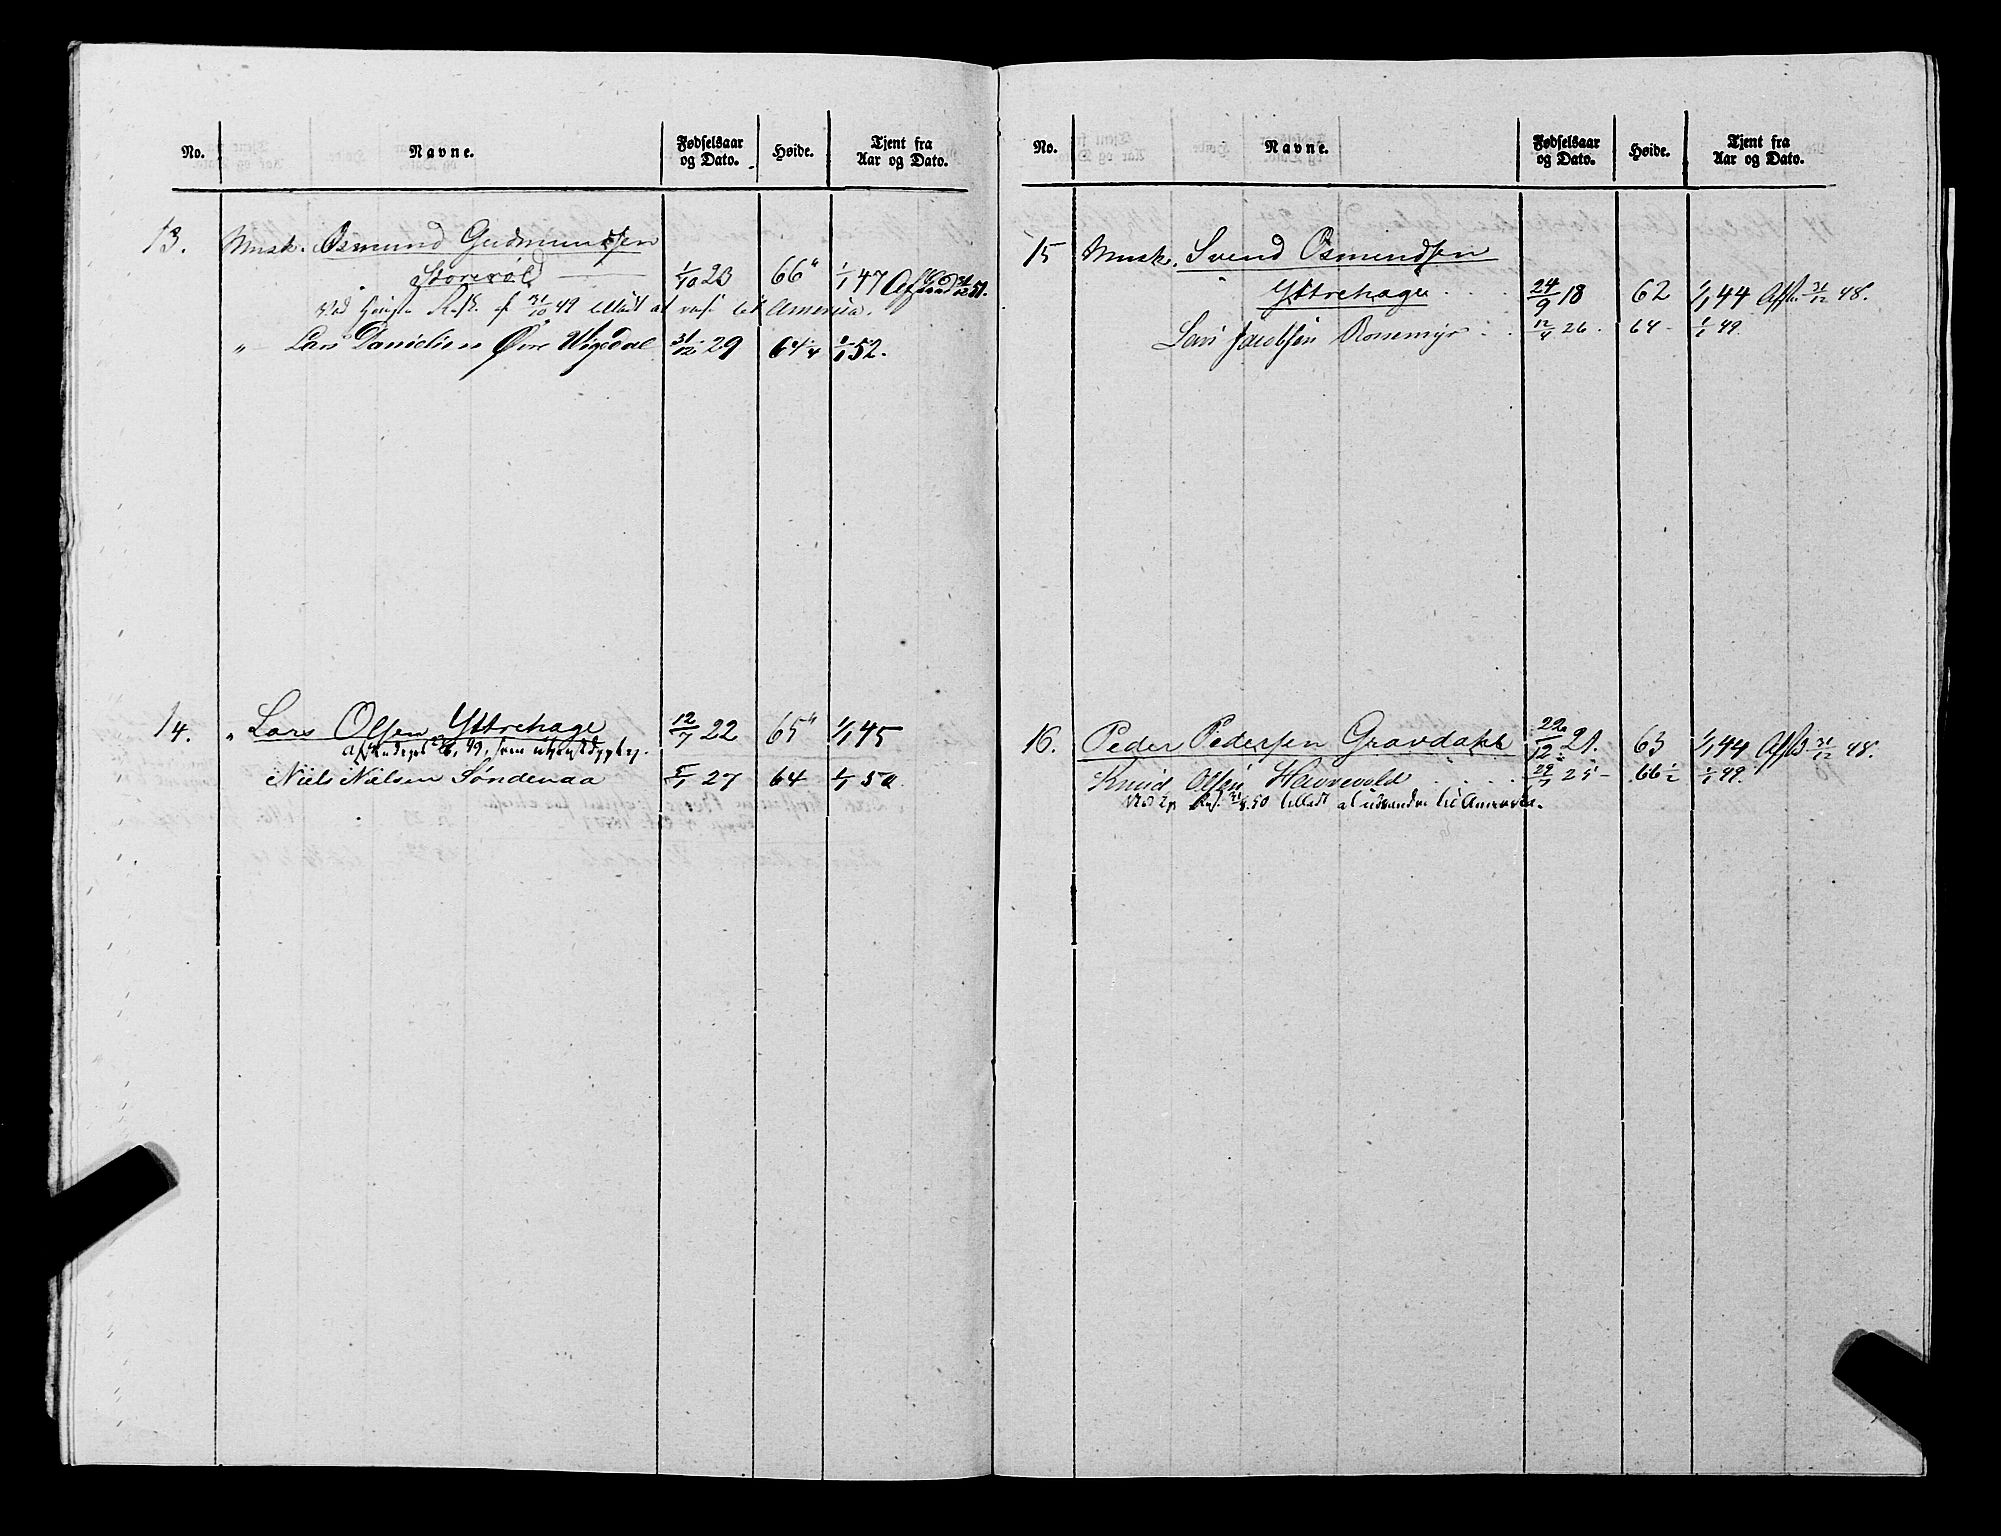 No. Navne. Fødselsaar og Dato. Høide. Tjent fra Aar og Dato.
13. Musk. Osmund Gudmundsen
Storevöld 1/10 23 66" 1/1 47 Afskd 31/12 51.
Ved Rsk. af 31/10 49 tilladt at reise til America.
" Lars Danielsen Øvr Wigedal 31/12 29 64 1/4 1/1 52.
14. " Lars Olsen Ÿttrehage 12/7 22 65" 1/1 45
49, som
Niels Nielsen Søndenaa 5/7 27 64 1/1 50
No. Navne. Fødselsaar og Dato. Høide. Tjent fra Aar og Dato.
15 Musk. Svend Osmundsen
Ÿttrehage 24/9 18 62 1/1 44 Afsk 31/12 48.
Lars Jacobsen Rossemyr 12/4 26. 64 - 1/1 49.
16. Peder Pedersen Gravdahl 22/12 21. 63 1/1 44 Afsk 31/12 48.
Knud Olsen Havrevold 29/7 25 - 66 1/2 1/1 49.
Ved 50 tilladt at udvandre til America.